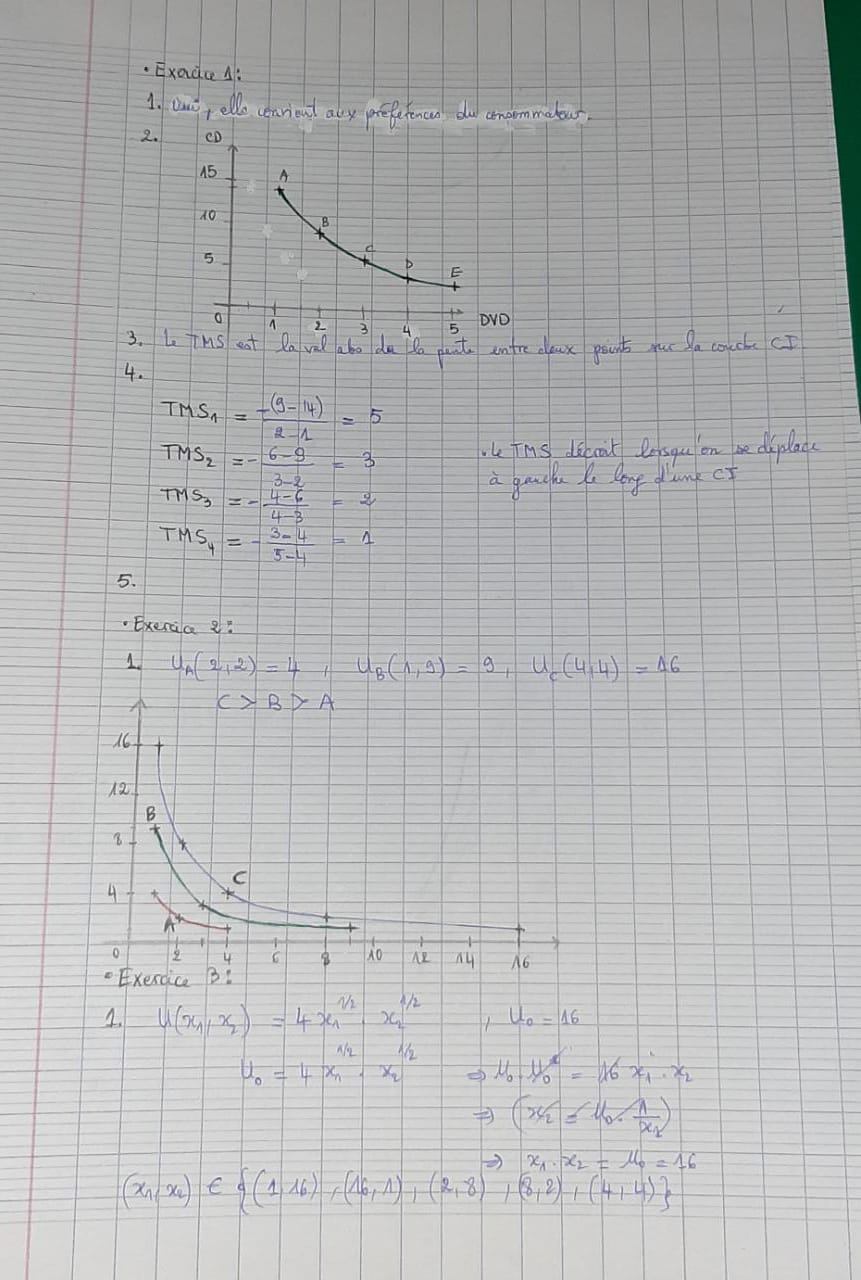 • Exercice 1:
1. Oui, elle convient aux préférences du consommateur.
2. CD
15
A
10
B
5
C
D
E
0 1 2 3 4 5 DVD
3. Le TMS est la val abs de la pente entre deux points sur la courbe CI
4.
TMS₁ = -(9-14)/(2-1) = 5
TMS₂ = -(6-9)/(3-2) = 3
• Le TMS décroit lorsqu'on se déplace
à gauche le long d'une CI
TMS₃ = -(4-6)/(4-3) = 2
TMS₄ = -(3-4)/(5-4) = 1
5.
• Exercice 2:
1. U_A(2,2) = 4 , U_B(1,9) = 9, U_C(4,4) = 16
C > B > A
16
12
B
8
C
4
A
0 2 4 6 8 10 12 14 16
• Exercice 3:
1. U(x₁,x₂) = 4 x₁^1/2 . x₂^1/2 , U₀ = 16
U₀ = 4 x₁^1/2 . x₂^1/2 ⇒ U₀.U₀ = 16 x₁ . x₂
⇒ (x₂ = U₀ . 1/x₁)
⇒ x₁ . x₂ = U₀ = 16
(x₁,x₂) ∈ {(1,16) , (16,1) , (2,8) , (8,2) , (4,4)}